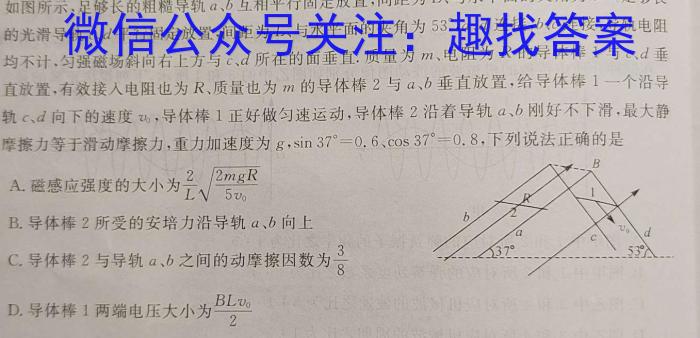 如图所示,足够长的粗糙导轨a、b互相平行固定放置,间距为
的光滑导 53°
微信公众号关注：趣找答案
均不计,匀强磁场斜向右上方与c、d所在的面垂直.质量为m、电阻为R的导体棒1与c、d垂
直放置,有效接入电阻也为R、质量也为m的导体棒2与a、b垂直放置,给导体棒1一个沿导
轨c、d向下的速度v₀,导体棒1正好做匀速运动,导体棒2沿着导轨a、b刚好不下滑,最大静
摩擦力等于滑动摩擦力,重力加速度为g,sin 37°=0.6、cos 37°=0.8,下列说法正确的是
A. 磁感应强度的大小为2/L √(2mgR/5v₀)
B. 导体棒2所受的安培力沿导轨a、b向上
C. 导体棒2与导轨a、b之间的动摩擦因数为3/8
D. 导体棒1两端电压大小为BLv₀/2
B
R
1
b
2
v₀
a
c
d
37°
53°